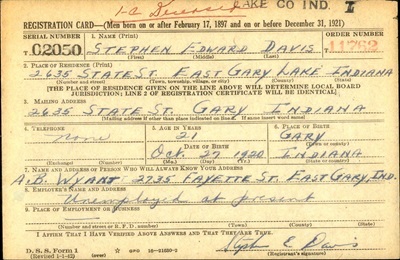 LAKE CO IND. I
REGISTRATION CARD—(Men born on or after February 17, 1897 and on or before December 31, 1921)
SERIAL NUMBER 1. NAME (Print) ORDER NUMBER
C2050 STEPHEN EDWARD DAVIS 11762
(First) (Middle) (Last)
2. PLACE OF RESIDENCE (Print)
2635 STATE ST. EAST GARY LAKE INDIANA
(Number and street) (Town, township, village, or city) (County) (State)
[THE PLACE OF RESIDENCE GIVEN ON THE LINE ABOVE WILL DETERMINE LOCAL BOARD
JURISDICTION; LINE 2 OF REGISTRATION CERTIFICATE WILL BE IDENTICAL]
3. MAILING ADDRESS
2635 STATE ST. GARY INDIANA
[Mailing address if other than place indicated on line 2. If same insert word same]
4. TELEPHONE 5. AGE IN YEARS 6. PLACE OF BIRTH
none 21 GARY
DATE OF BIRTH (Town or county)
Oct. 27 1920 INDIANA
(Exchange) (Number) (Mo.) (Day) (Yr.) (State or country)
7. NAME AND ADDRESS OF PERSON WHO WILL ALWAYS KNOW YOUR ADDRESS
A.B. WYANT 2735 FAYETTE ST. EAST GARY, IND.
8. EMPLOYER'S NAME AND ADDRESS
Unemployed at present
9. PLACE OF EMPLOYMENT OR BUSINESS
(Number and street or R. F. D. number) (Town) (County) (State)
I AFFIRM THAT I HAVE VERIFIED ABOVE ANSWERS AND THAT THEY ARE TRUE.
D. S. S. Form 1
(Revised 1-1-42) (over) Stephen E. Davis
(Registrant's signature)